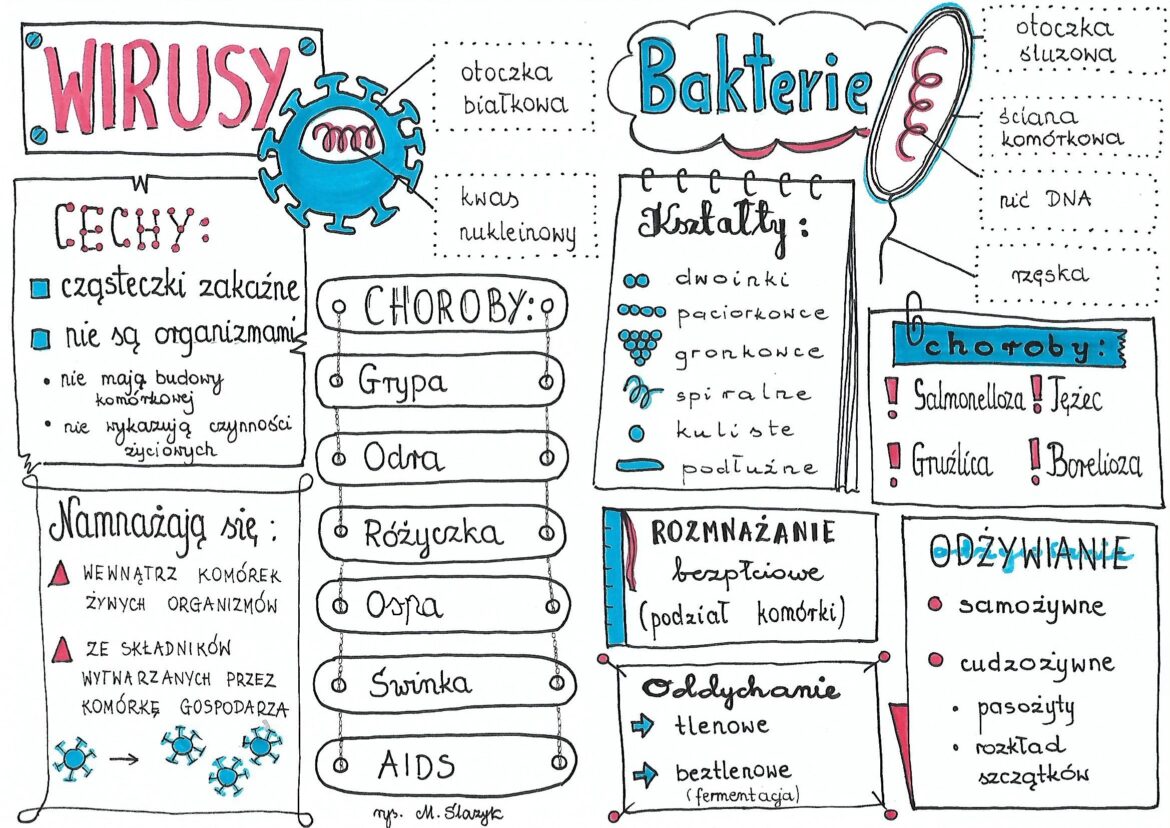 WIRUSY
otoczka
białkowa
kwas
nukleinowy
CECHY:
cząsteczki zakaźne
nie są organizmami
nie mają budowy
komórkowej
nie wykazują czynności
życiowych
Namnażają się:
WEWNĄTRZ KOMÓREK
ŻYWYCH ORGANIZMÓW
ZE SKŁADNIKÓW
WYTWARZANYCH PRZEZ
KOMÓRKĘ GOSPODARZA
CHOROBY:
Grypa
Odra
Różyczka
Ospa
Świnka
AIDS
rys. M. Ślazyk
Bakterie
otoczka
śluzowa
ściana
komórkowa
nić DNA
rzęska
Kształty:
dwoinki
paciorkowce
gronkowce
spiralne
kuliste
podłużne
choroby:
! Salmonelloza ! Tężec
! Gruźlica ! Borelioza
ROZMNAŻANIE
bezpłciowe
(podział komórki)
Oddychanie
tlenowe
beztlenowe
(fermentacja)
ODŻYWIANIE
samożywne
cudzożywne
pasożyty
rozkład
szczątków